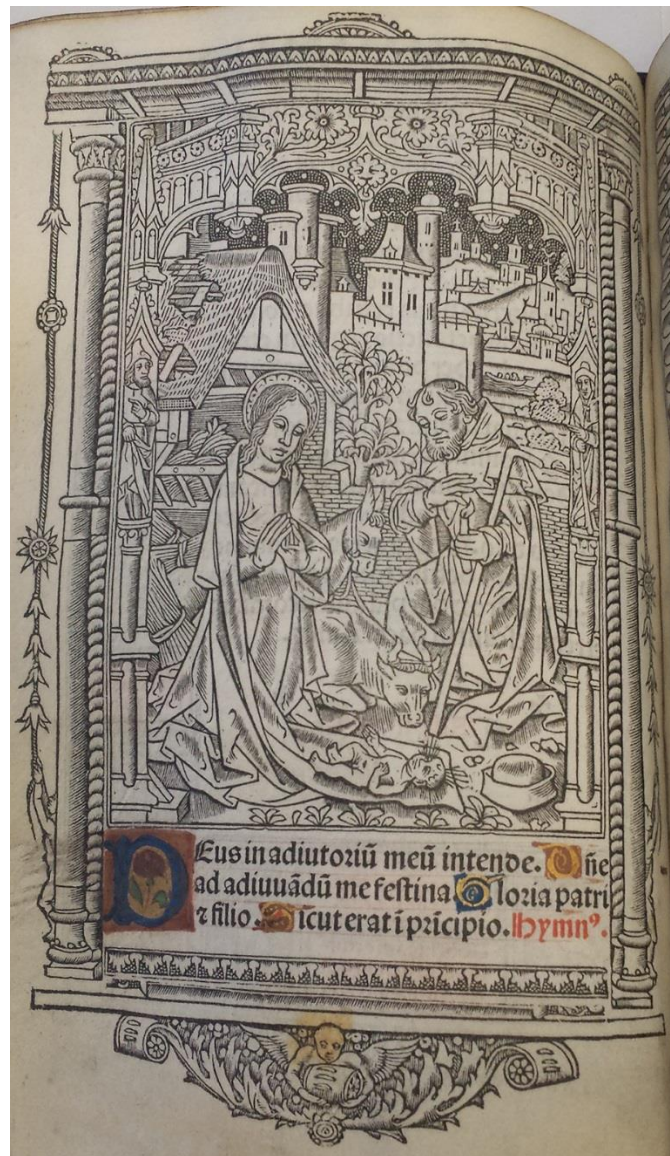 Deus in adiutoriū meū intende. Dn̄e
ad adiuuādū me festina Gloria patri
⁊ filio Sicut erat ī prīcipio. Hymnꝰ.